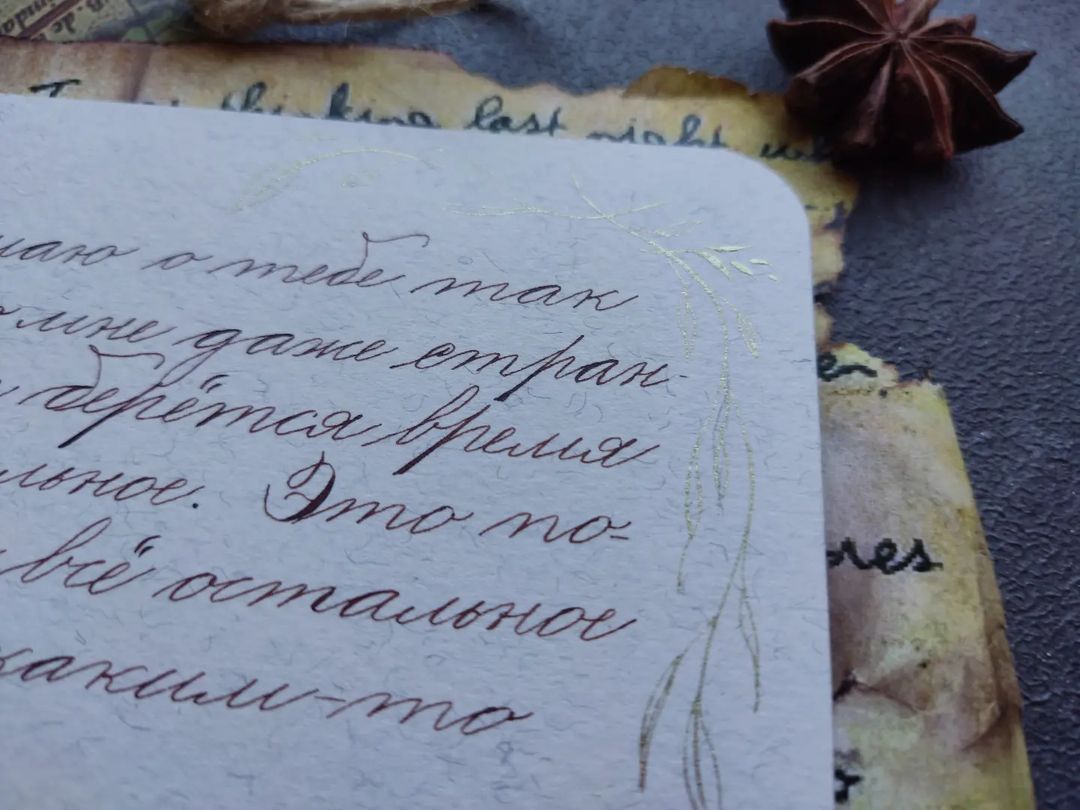 thinking last night
о тебе так
мне даже стран-
берётся время
Это по-
всё остальное
какими-то
ores